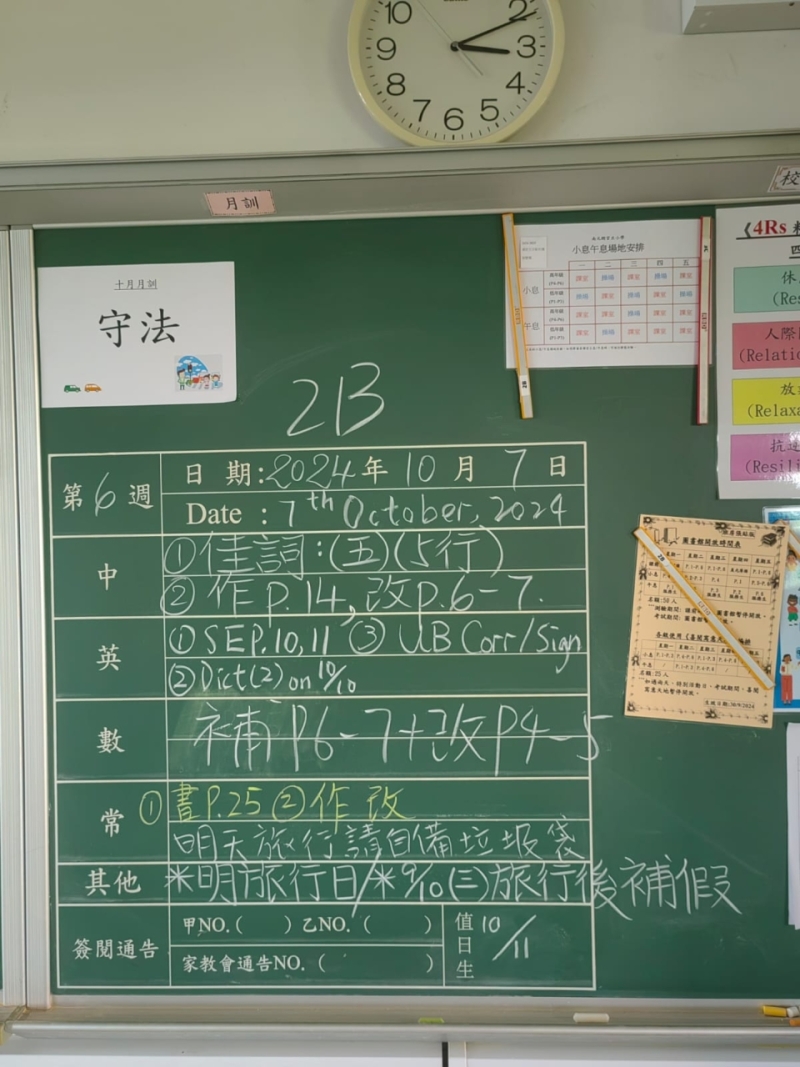 10 2
9 3
8 4
7 6 5
月訓
十月月訓
守法
小息午息場地安排
一 二 三 四 五
小息
午息
《4Rs
四
休
(Res
人際
(Relatio
放
(Relaxa
抗逆
(Resili
2B
第6週
日期:2024年10月7日
Date : 7th October, 2024
中
①佳詞:(五)(5行)
②作P.14,改P.6-7.
英
①SEP.10,11 ③UB Corr/Sign
②Dict(2) on 10/10
數
補P6-7+改P4-5
常
①書P.25 ②作改
明天旅行請自備垃圾袋
其他
*明旅行日/*9/10(三)旅行後補假
簽閱通告
甲NO.( ) 乙NO.( )
家教會通告NO.( )
值日生
10/11
圖書館開放時間表
星期一 星期二 星期三 星期四 星期五
小息
名額:50人
名額:25人